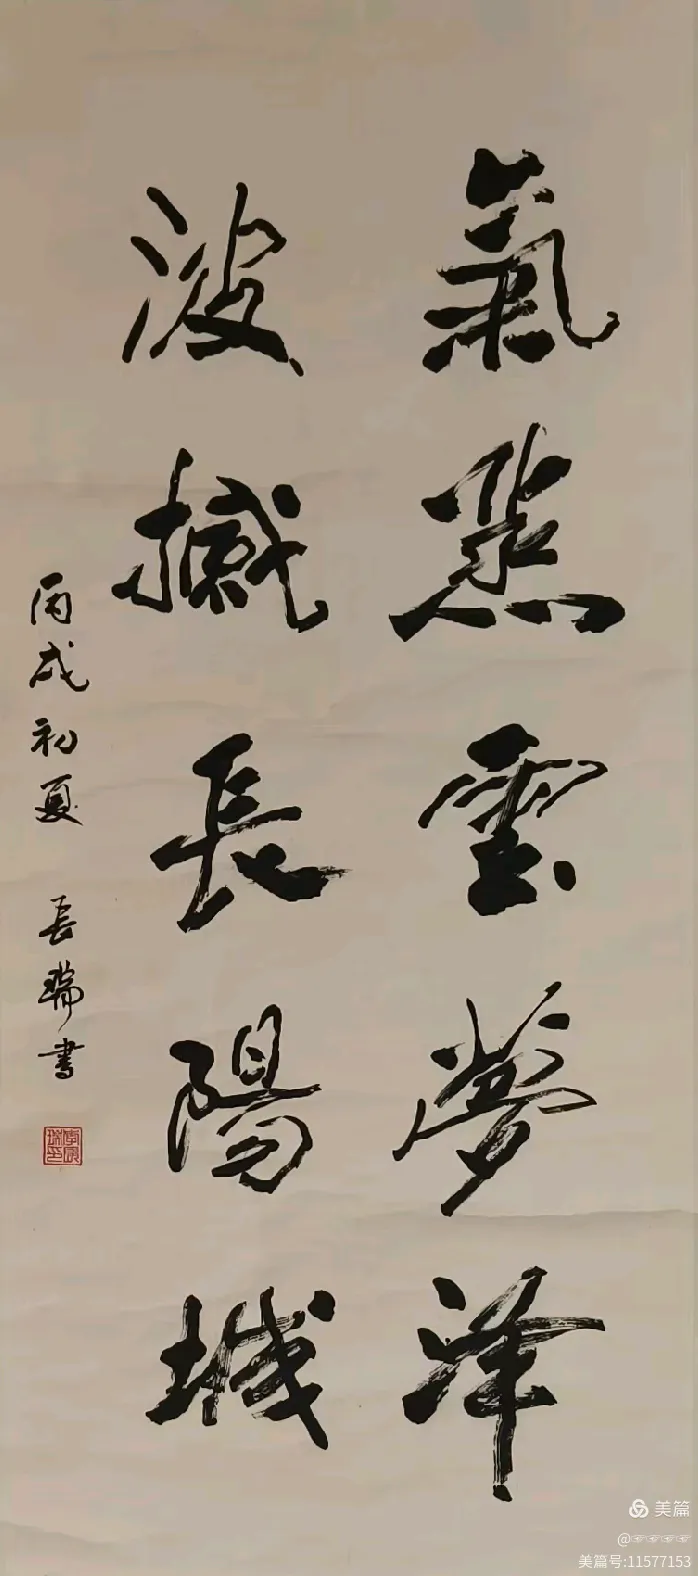 氣蒸雲夢泽
波撼長陽城
丙戌初夏 長瑞書
美篇
@☞☞☞☞
美篇号:11577153